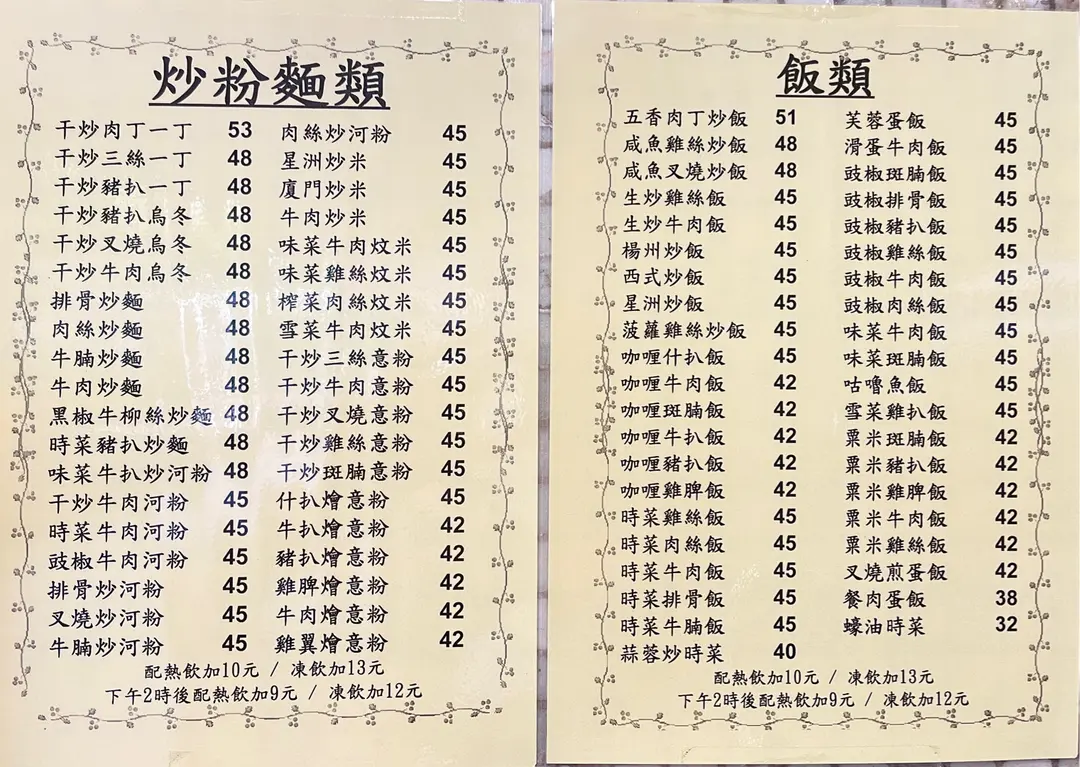 炒粉麵類
干炒肉丁一丁 53
干炒三絲一丁 48
干炒豬扒一丁 48
干炒豬扒烏冬 48
干炒叉燒烏冬 48
干炒牛肉烏冬 48
排骨炒麵 48
肉絲炒麵 48
牛腩炒麵 48
牛肉炒麵 48
黑椒牛柳絲炒麵 48
時菜豬扒炒麵 48
味菜牛扒炒河粉 48
干炒牛肉河粉 45
時菜牛肉河粉 45
豉椒牛肉河粉 45
排骨炒河粉 45
叉燒炒河粉 45
牛腩炒河粉 45
肉絲炒河粉 45
星洲炒米 45
廈門炒米 45
牛肉炒米 45
味菜牛肉炆米 45
味菜雞絲炆米 45
榨菜肉絲炆米 45
雪菜牛肉炆米 45
干炒三絲意粉 45
干炒牛肉意粉 45
干炒叉燒意粉 45
干炒雞絲意粉 45
干炒斑腩意粉 45
什扒燴意粉 45
牛扒燴意粉 42
豬扒燴意粉 42
雞脾燴意粉 42
牛肉燴意粉 42
雞翼燴意粉 42
配熱飲加10元 / 凍飲加13元
下午2時後配熱飲加9元 / 凍飲加12元
飯類
五香肉丁炒飯 51
咸魚雞絲炒飯 48
咸魚叉燒炒飯 48
生炒雞絲飯 45
生炒牛肉飯 45
楊州炒飯 45
西式炒飯 45
星洲炒飯 45
菠蘿雞絲炒飯 45
咖喱什扒飯 45
咖喱牛肉飯 42
咖喱斑腩飯 42
咖喱牛扒飯 42
咖喱豬扒飯 42
咖喱雞脾飯 42
時菜雞絲飯 45
時菜肉絲飯 45
時菜牛肉飯 45
時菜排骨飯 45
時菜牛腩飯 45
蒜蓉炒時菜 40
芙蓉蛋飯 45
滑蛋牛肉飯 45
豉椒斑腩飯 45
豉椒排骨飯 45
豉椒豬扒飯 45
豉椒雞絲飯 45
豉椒牛肉飯 45
豉椒肉絲飯 45
味菜牛肉飯 45
味菜斑腩飯 45
咕嚕魚飯 45
雪菜雞扒飯 45
粟米斑腩飯 42
粟米豬扒飯 42
粟米雞脾飯 42
粟米牛肉飯 42
粟米雞絲飯 42
叉燒煎蛋飯 42
餐肉蛋飯 38
蠔油時菜 32
配熱飲加10元 / 凍飲加13元
下午2時後配熱飲加9元 / 凍飲加12元